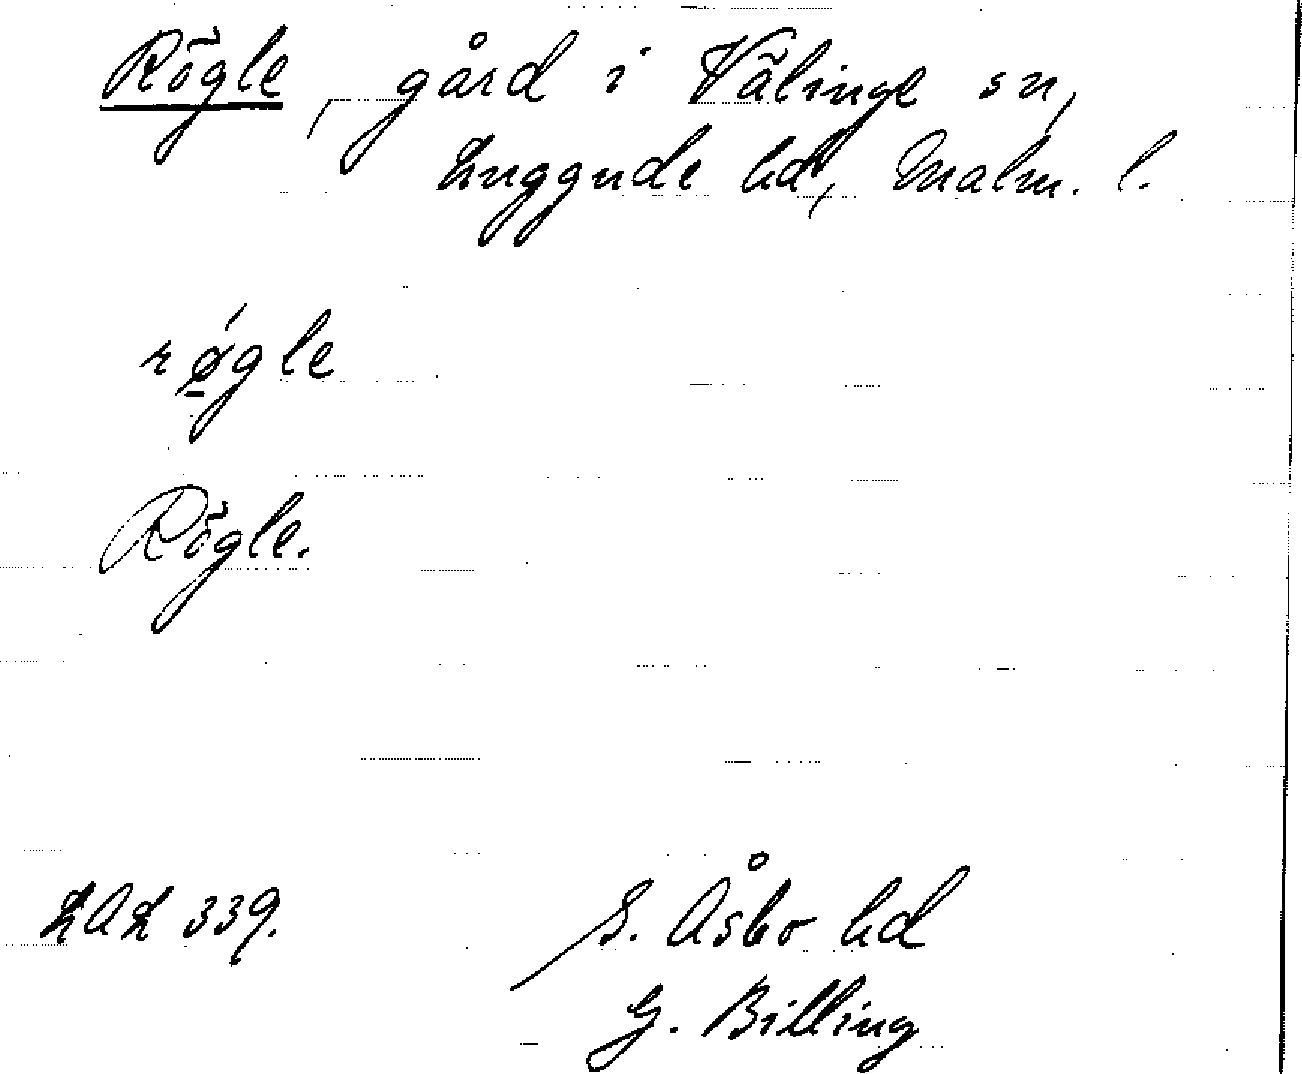 Rögle, gård i Välinge sn,
Luggude hd, Malm. l.
rǿ̱gle
Rögle.
LAL 339.
S. Åsbo hd
G. Billing